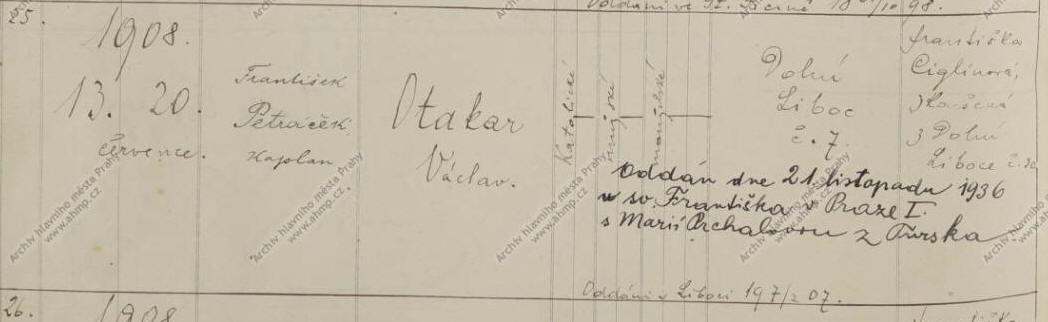 25.
Oddáni ve 18 /10 98.
1908.
13. 20.
července.
František
Petráček
kaplan
Otakar
Václav.
Katolické
mužské
manželské
Dolní
Liboc
č. 7.
Františka
Ciglínová,
z Dolní
Liboce č.
Oddán dne 21. listopadu 1936
u sv. Františka v Praze I.
s Marií Prchalovou z Turska
Oddáni v Liboci 19 7/2 07.
26.
1908
Archiv hlavního města Prahy
www.ahmp.cz